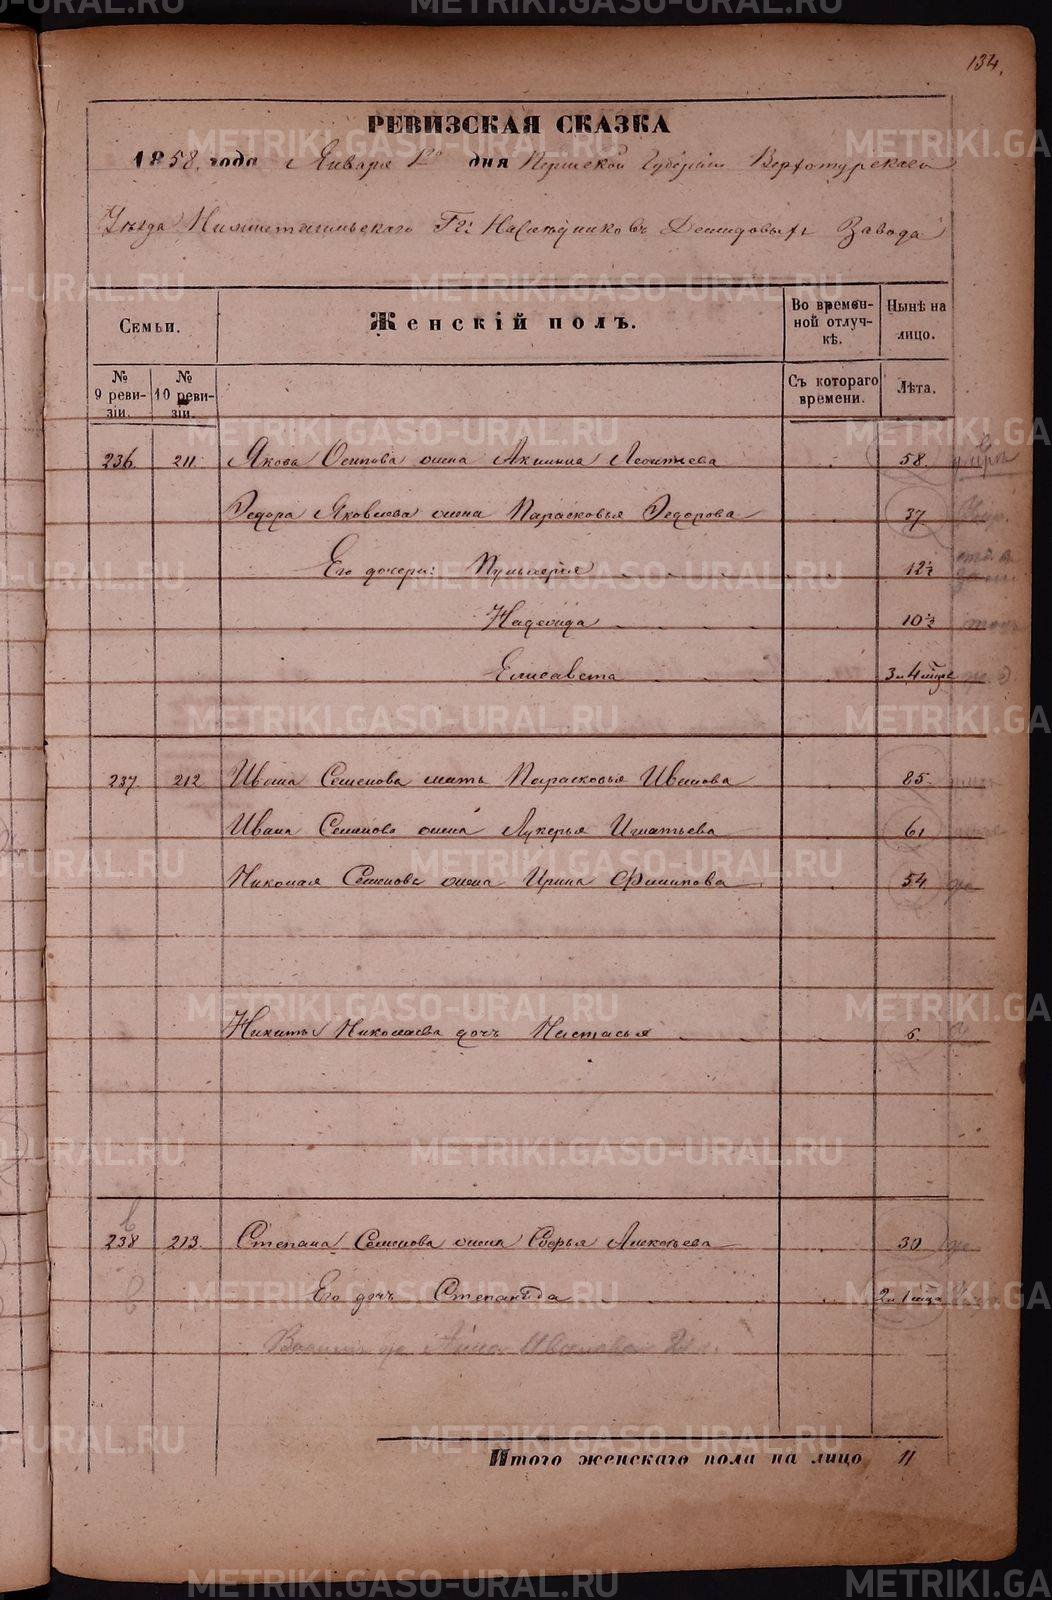 134.
РЕВИЗСКАЯ СКАЗКА
1858 года Января 12го дня Пермской Губернiи Верхотурскаго
Уѣзда Нижнетагильскаго Гг: Наслѣдниковъ Демидовыхъ Завода
Семьи.
Женскiй полъ.
Во времен-
ной отлуч-
кѣ.
Нынѣ на
лицо.
№
9 реви-
зiи.
№
10 реви-
зiи.
Съ котораго
времени.
Лѣта.
236. 211. Якова Осипова жена Акилина Леонтьева 58. умре
Федора Яковлева жена Парасковья Федорова 37
Его дочери: Пульхерiя 12½
Надежда 10½
Елисавета 3 и 4 мѣсяц
237. 212. Ивана Семенова мать Парасковья Иванова 85.
Ивана Семенова жена Лукерья Игнатьева 61
Николая Семенова жена Ирина Филипова 54
Никиты Николаева дочь Настасья 6.
238 213. Степана Семенова жена Софья Алексѣева 30
Его дочь Степанида 2 и 1 мѣсяца
Анна Иванова
Итого женскаго пола на лицо 11
METRIKI.GASO-URAL.RU